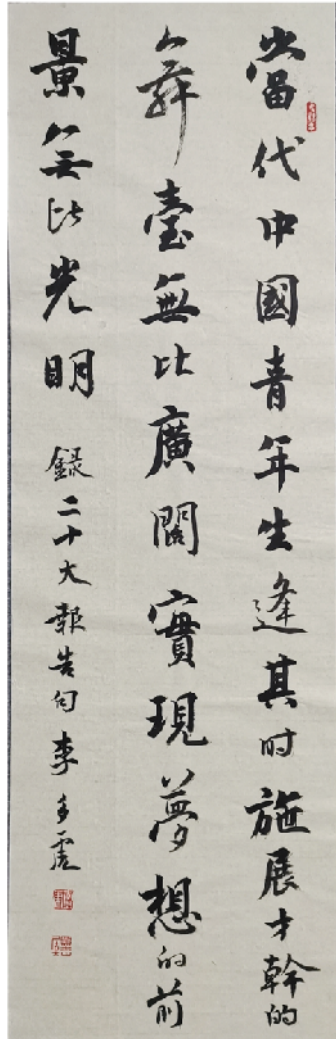 當代中國青年生逢其时施展才幹的
舞臺無比廣闊實現夢想的前
景無比光明
錄二十大報告句李多虎